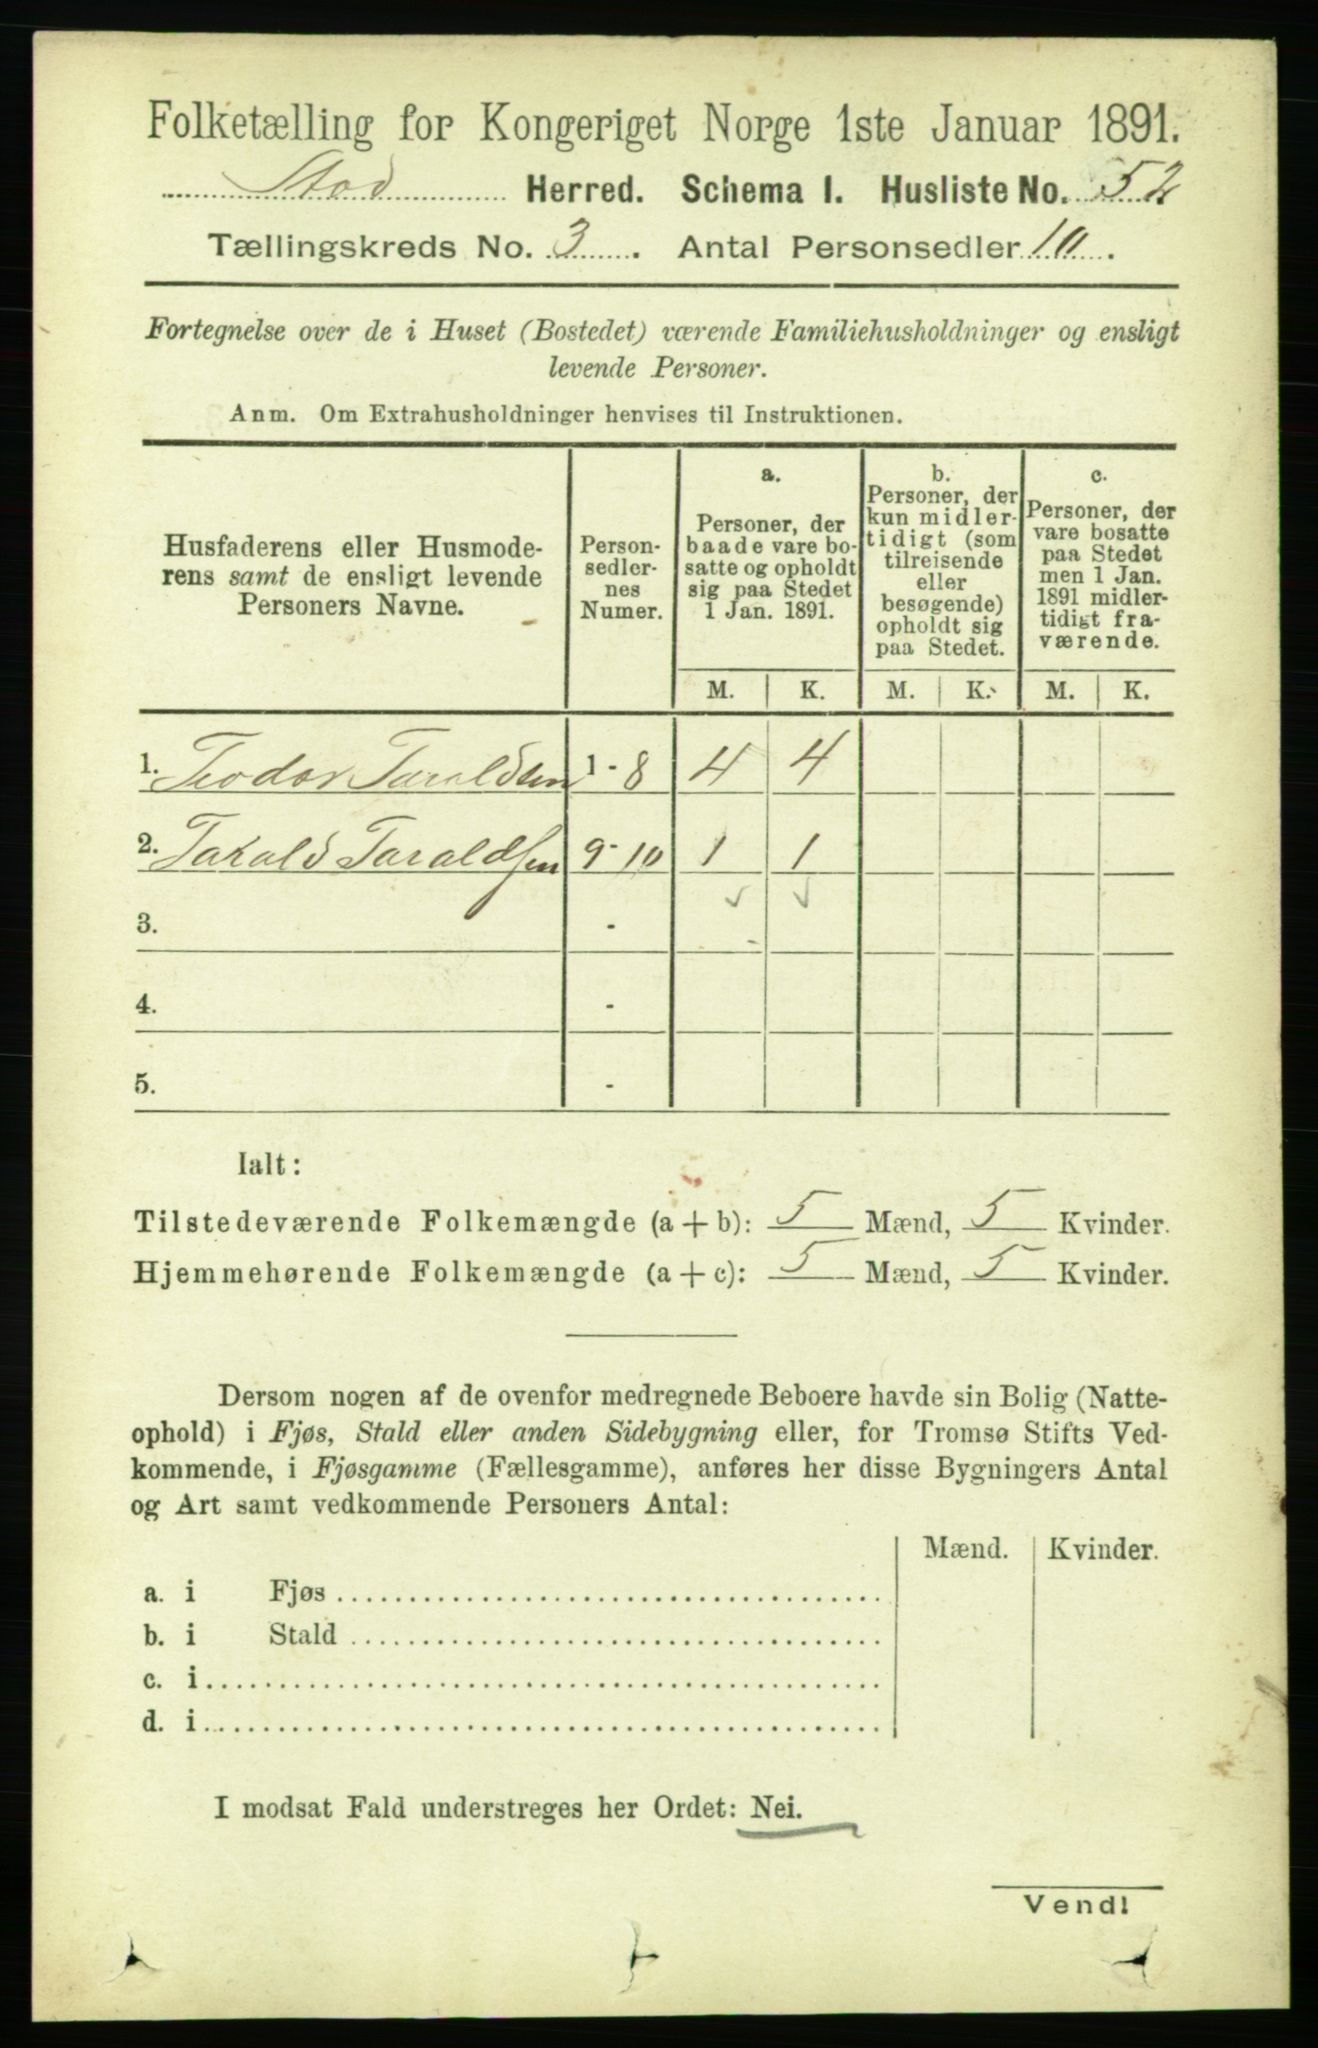 Folketælling for Kongeriget Norge 1ste Januar 1891.
Stod Herred. Schema I. Husliste No. 52
Tællingskreds No. 3. Antal Personsedler 10.
Fortegnelse over de i Huset (Bostedet) værende Familiehusholdninger og ensligt
levende Personer.
Anm. Om Extrahusholdninger henvises til Instruktionen.
Husfaderens eller Husmode-
rens samt de ensligt levende
Personers Navne.
Person-
sedler-
nes
Numer.
a.
Personer, der
baade vare bo-
satte og opholdt
sig paa Stedet
1 Jan. 1891.
b.
Personer, der
kun midler-
tidigt (som
tilreisende
eller
besøgende)
opholdt sig
paa Stedet.
c.
Personer, der
vare bosatte
paa Stedet
men 1 Jan.
1891 midler-
tidigt fra-
værende.
M. K. M. K. M. K.
1. Teodor Taraldsen 1-8 4 4
2. Tarald Taraldsen 9-10 1 1
3. -
4. -
5. -
Ialt:
Tilstedeværende Folkemængde (a + b): 5 Mænd, 5 Kvinder.
Hjemmehørende Folkemængde (a + c): 5 Mænd, 5 Kvinder.
Dersom nogen af de ovenfor medregnede Beboere havde sin Bolig (Natte-
ophold) i Fjøs, Stald eller anden Sidebygning eller, for Tromsø Stifts Ved-
kommende, i Fjøsgamme (Fællesgamme), anføres her disse Bygningers Antal
og Art samt vedkommende Personers Antal:
Mænd. Kvinder.
a. i Fjøs
b. i Stald
c. i
d. i
I modsat Fald understreges her Ordet: Nei.
Vend!